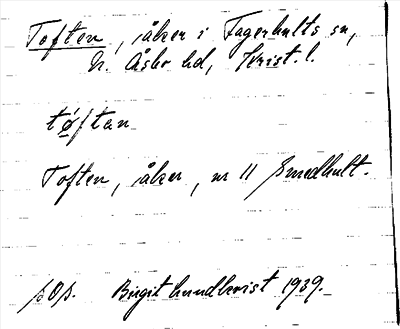 Toften, åker i Fagerhults sn,
N. Åsbo hd, Krist. l.
tøftan
Toften, åker, nr 11 Smedhult.
pOp. Birgit Lundkvist 1939.